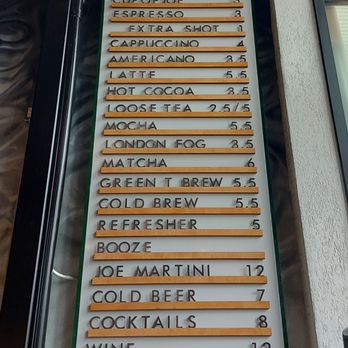 CUP OF JOE 3
ESPRESSO 3
EXTRA SHOT 1
CAPPUCCINO 4
AMERICANO 3.5
LATTE 5.5
HOT COCOA 3.5
LOOSE TEA 2.5/5
MOCHA 5.5
LONDON FOG 3.5
MATCHA 6
GREEN T BREW 5.5
COLD BREW 5.5
REFRESHER 5
BOOZE
JOE MARTINI 12
COLD BEER 7
COCKTAILS 8
WINE 12